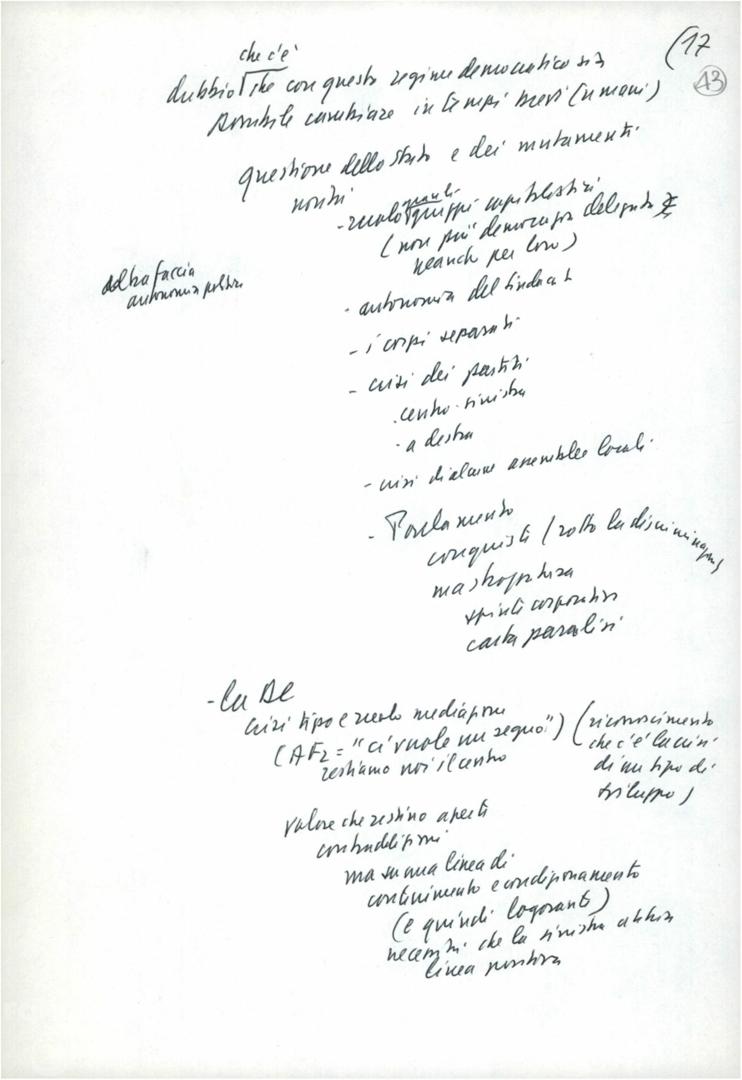 (17
43
che c'è
dubbio che con questo regime democratico sia
possibile cambiare in tempi brevi (umani)
questione dello Stato e dei mutamenti
nostri
- ruolo grandi gruppi capitalistici
(non più democrazia delegata
neanche per loro)
dolza faccia
autonomia politica
- autonomia del sindacato
- i corpi separati
- crisi dei partiti
. centro-sinistra
. a destra
- crisi di alcune assemblee locali
- Parlamento
conquisti (rotto la discriminazione)
ma strozzatura
spinte corporative
carta paralisi
- la DC
crisi tipo e ruolo mediazione
(AF2 = "ci vuole un segno")
restiamo noi il centro
(riconoscimento
che c'è la crisi
di un tipo di
sviluppo)
valore che restino aperti
contraddizioni
ma su una linea di
contenimento e condizionamento
(e quindi logoranti)
necessità che la sinistra abbia
linea positiva